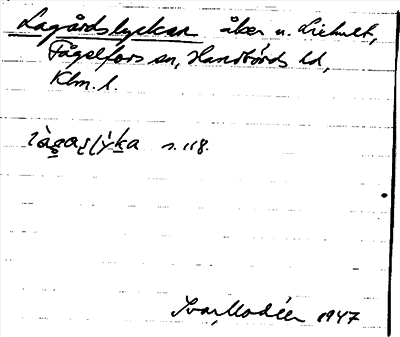 Lagårdslyckan åker u. Liehult,
Fågelfors sn, Handbörds hd,
Klm. l.
s. 118.
Ivar Modéer 1947